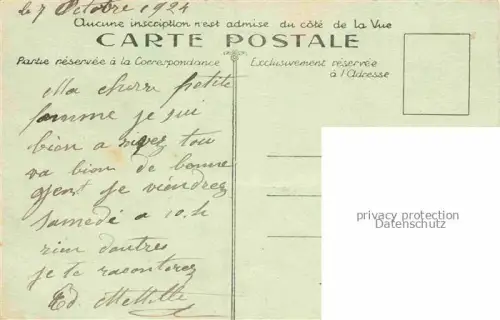 le 7 Octobre 1924
Aucune inscription n'est admise du côté de la Vue
CARTE POSTALE
Partie réservée à la Correspondance
Exclusivement réservée
à l'Adresse
Ma cherre petite
famme je sui
bien a rivez tou
va bien de bonne
gent je viendrez
samedé a 10.h
rien dautres
je te raconterez
Ed.
privacy protection
Datenschutz